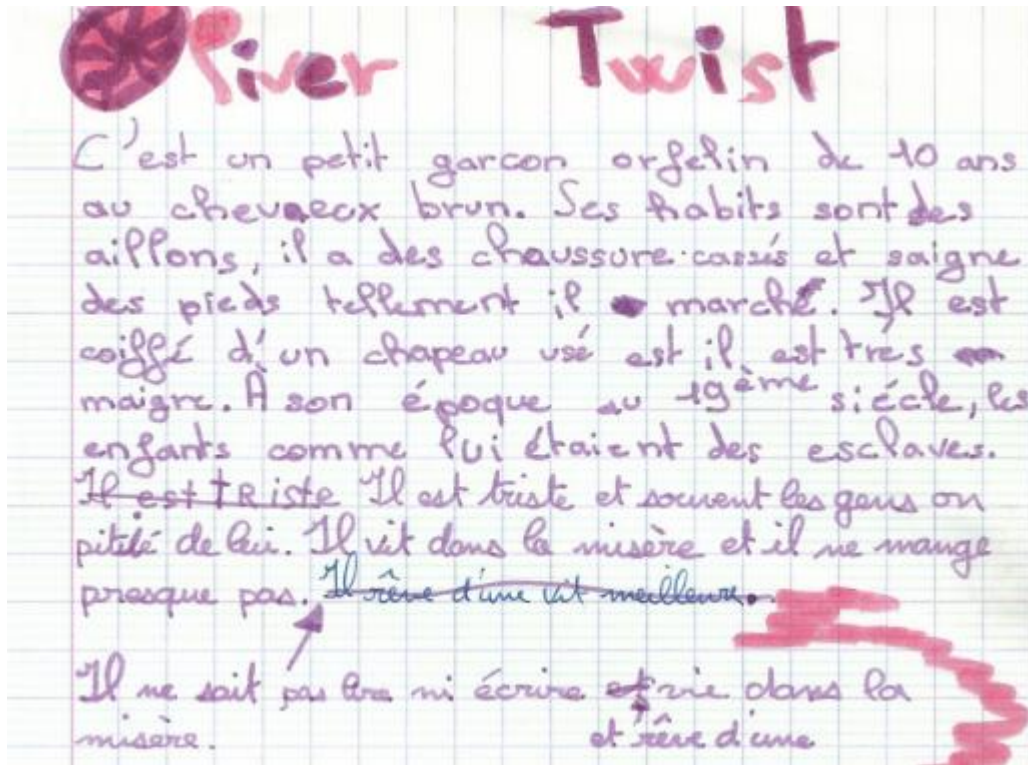 Oliver Twist
C'est un petit garcon orfelin de 10 ans
au cheveux brun. Ses habits sont des
aillons, il a des chaussure cassés et saigne
des pieds tellement il marché. Il est
coiffé d'un chapeau usé est il est très
maigre. À son époque au 19ème siécle, les
enfants comme lui étaient des esclaves.
Il est tRiste Il est triste et souvent les gens on
pitié de lui. Il vit dans la misère et il ne mange
presque pas. Il rêve d'une vit meilleure.
Il ne sait pas lire ni écrire et vie dans la
misère. et rêve d'une